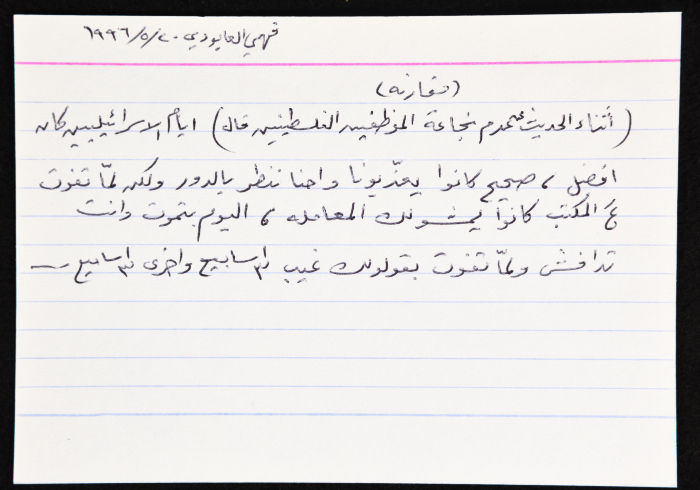 فهمي العابودي ٢٠/٥/١٩٩٦
(مقارنه)
(أثناء الحديث عن عدم نجاعة الموظفين الفلسطينين قال) ايام الاسرائيليين كان
افضل ، صحيح كانوا يعذّبونا واحنا ننطر بالدور ولكن لمّا تفوت
عَ المكتب كانوا يمشولك المعامله ، اليوم بتموت وانت
تدافش ولمّا تفوت بقولولك غيب ٣ اسابيع واخرى ٣ اسابيع